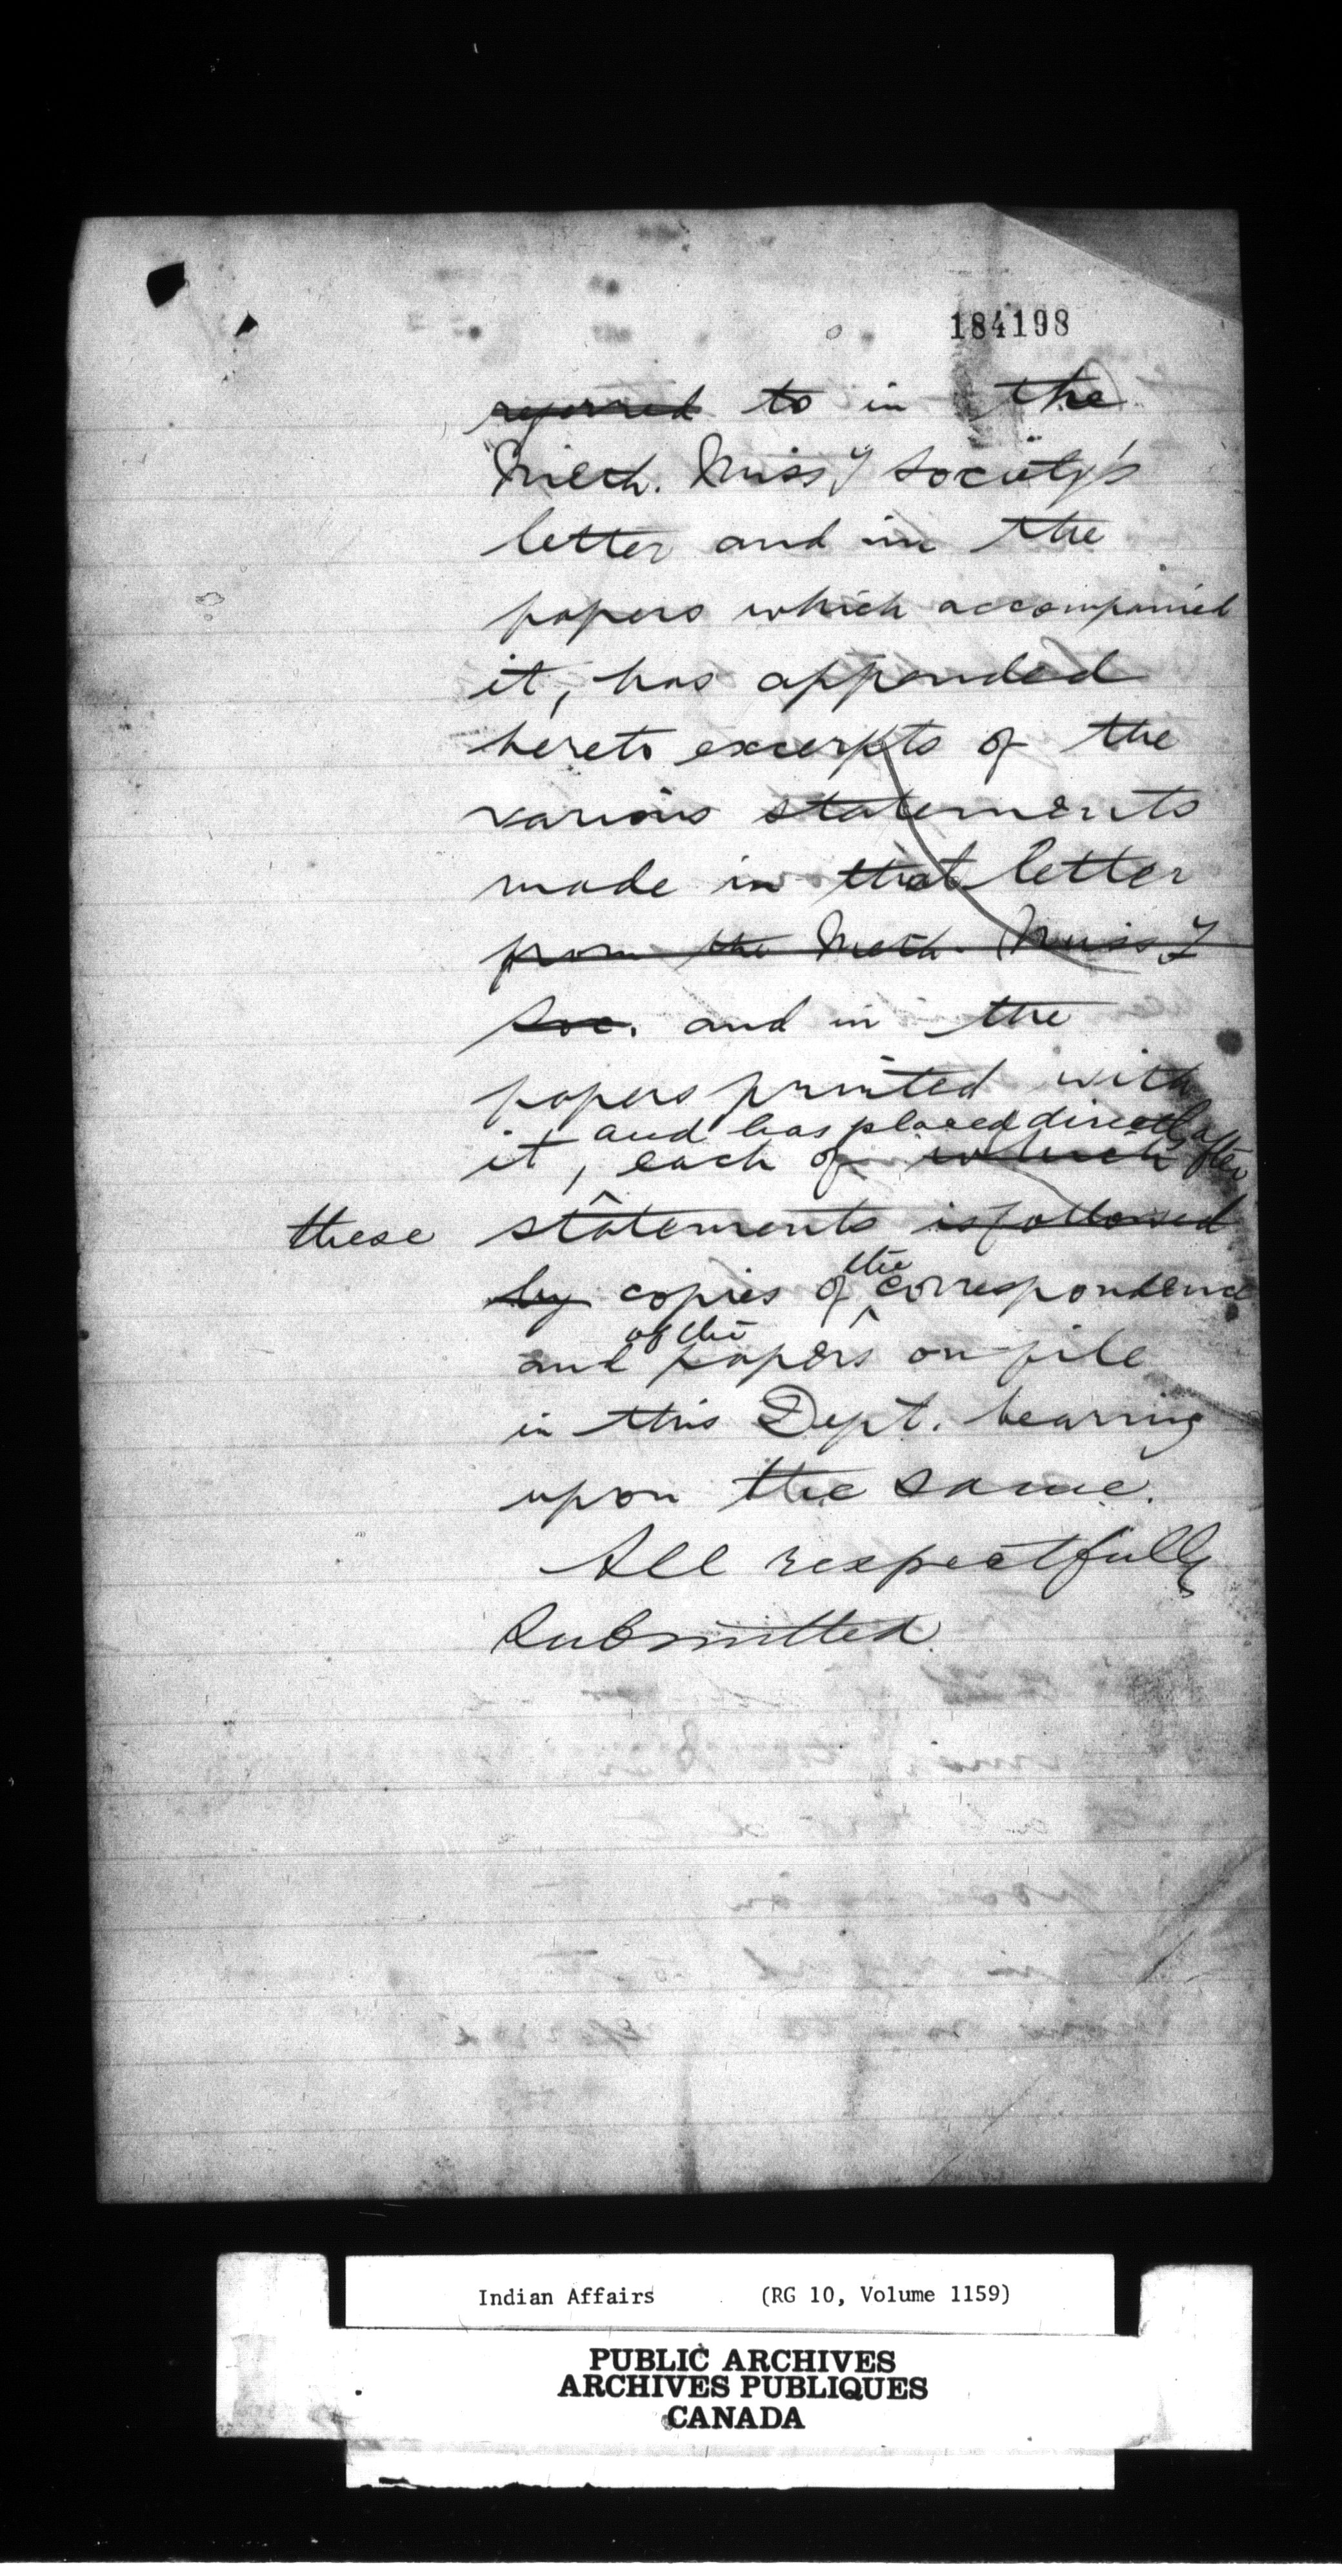 184198
referred to in the
Meth. Miss'y Society's
letter and in the
papers which accompanied
it, has appended
hereto excerpts of the
various statements
made in that letter
from the Meth. Miss'y
Soc. and in the
papers printed with
and has placed directly after
it, each of which
these statements is followed
the
by copies of correspondence
of the
and papers on file
in this Dept. bearing
upon the same.
All respectfully
Submitted.
Indian Affairs (RG 10, Volume 1159)
PUBLIC ARCHIVES
ARCHIVES PUBLIQUES
CANADA